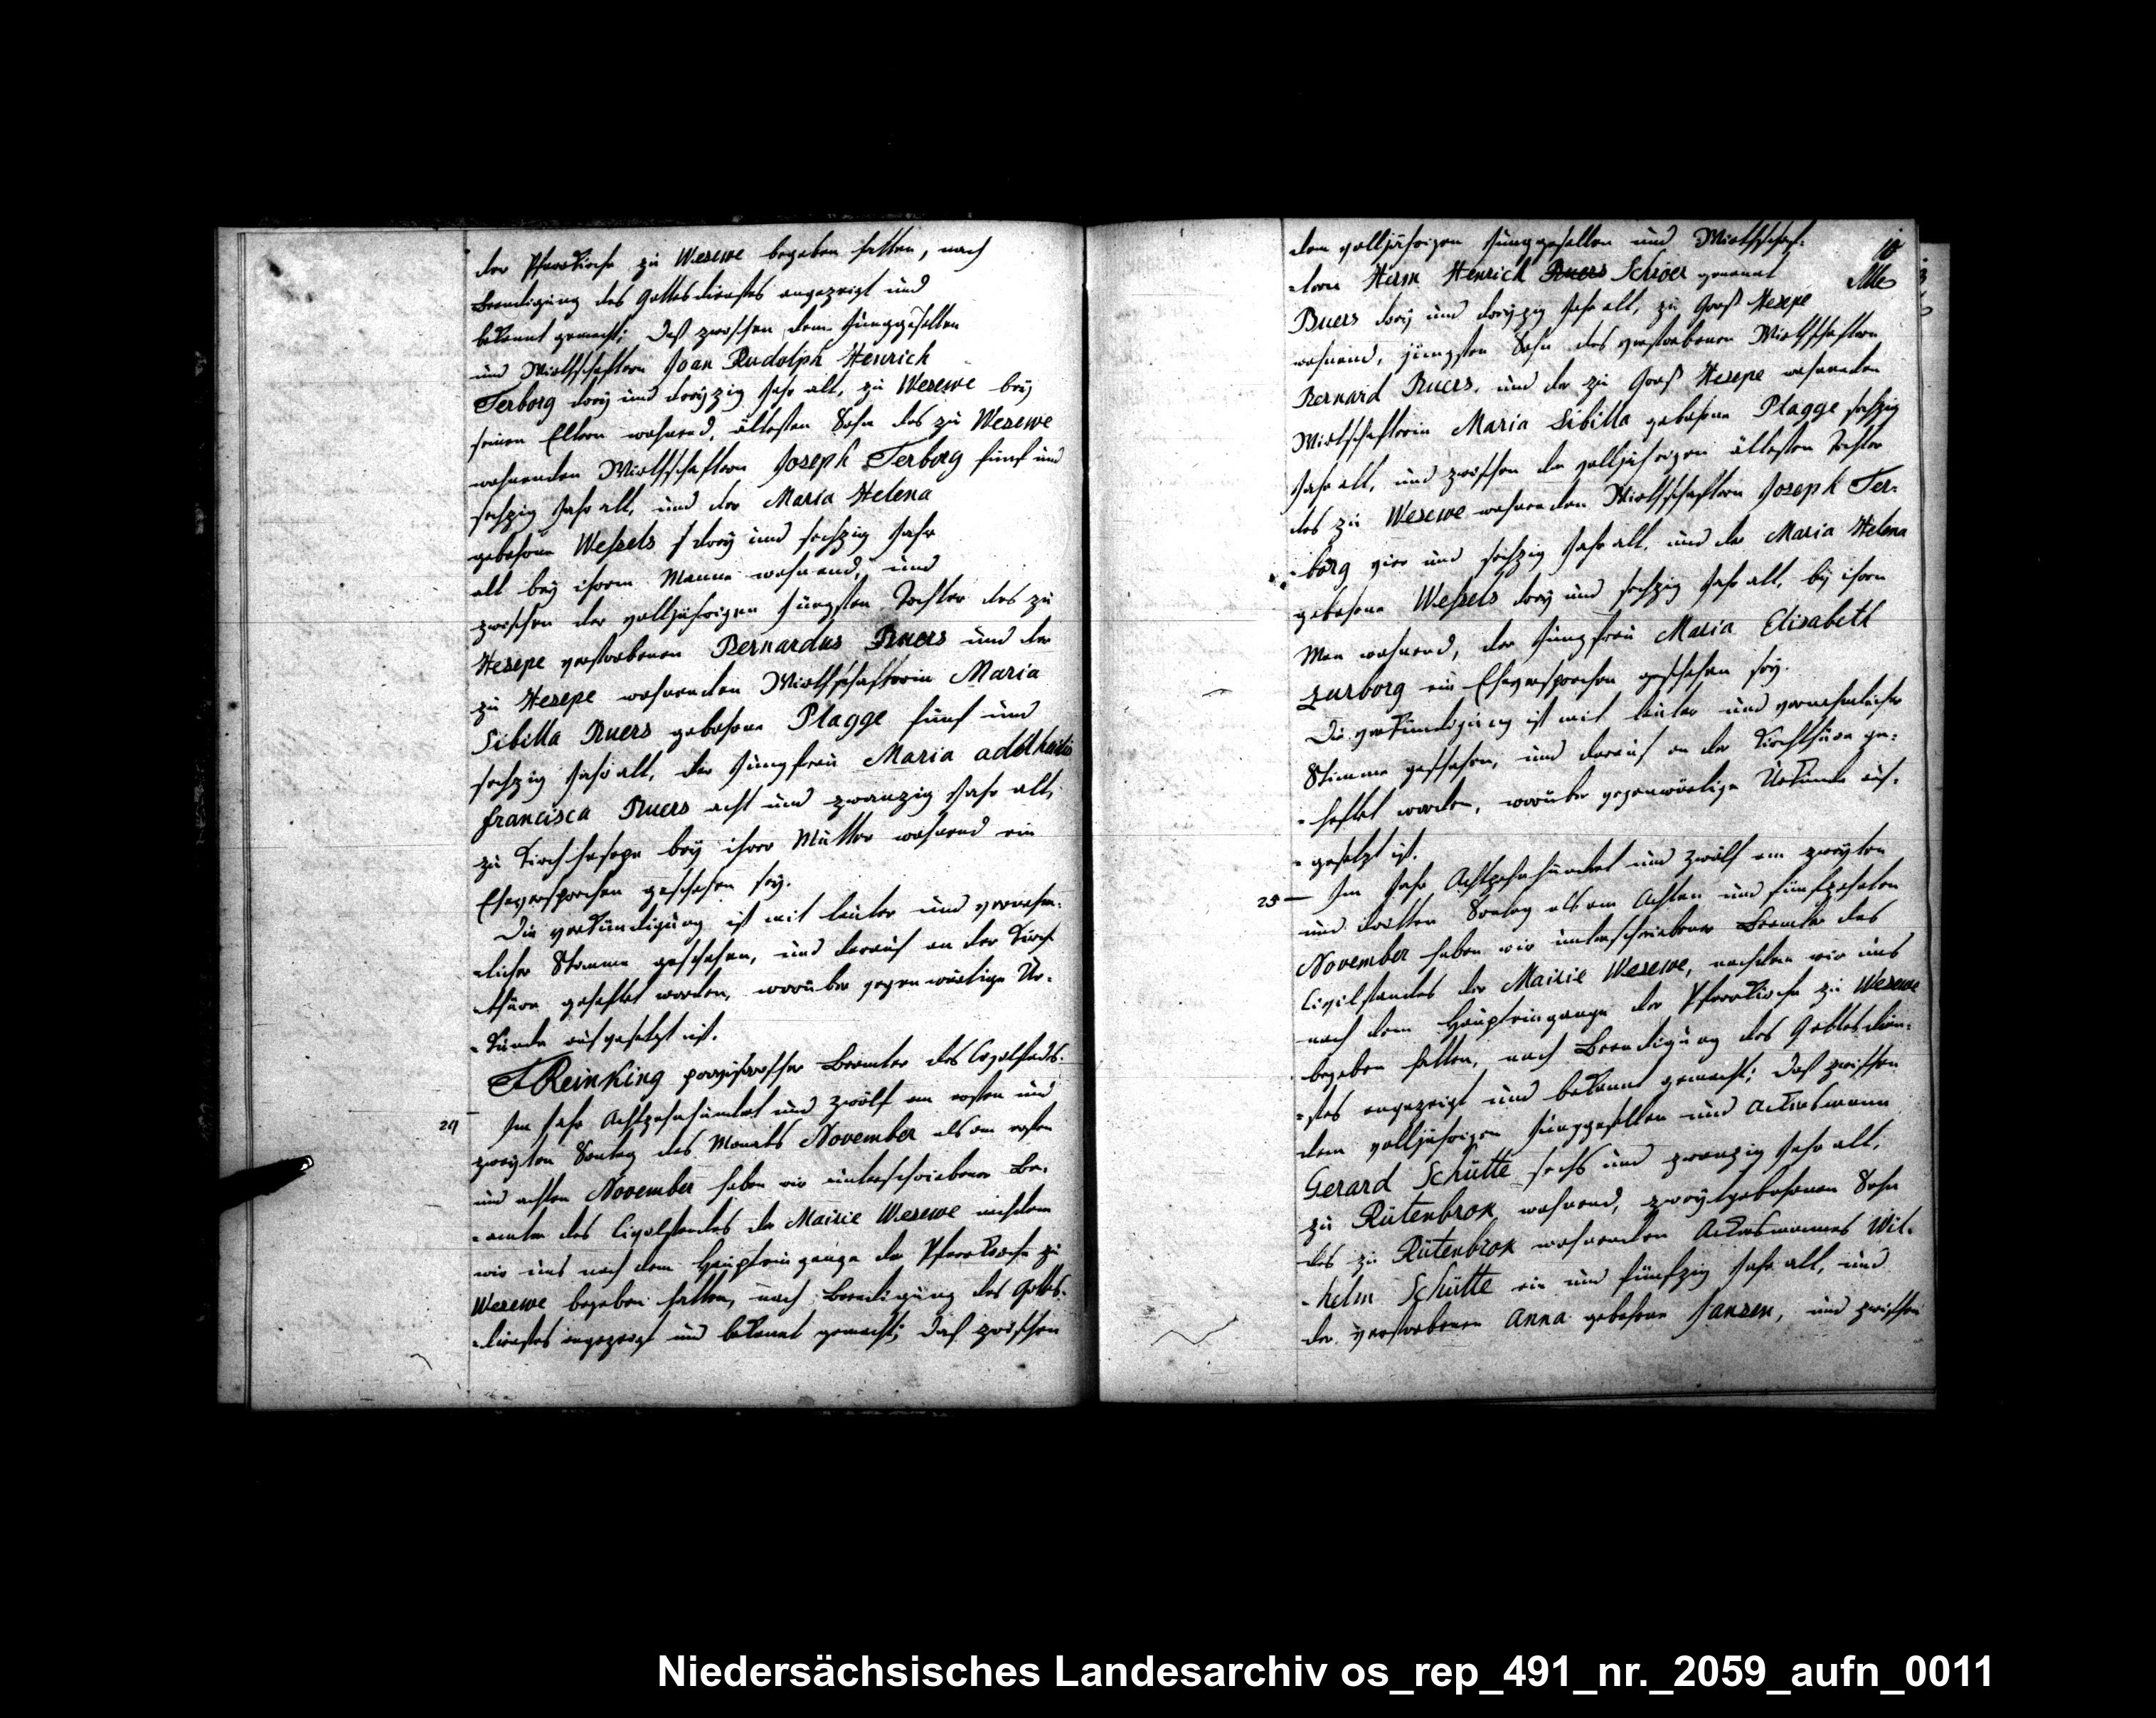 der Pfarrkirche zu Wesewe begeben hatten, nach
Beendigung des Gottesdienstes angezeigt und
bekannt gemacht; daß zwischen dem Junggesellen
und Wirthschaftern Joan Rudolph Henrich
Terborg drey und dreyzig Jahr alt, zu Wesewe bey
seinen Eltern wohnend, ältesten Sohn des zu Wesewe
wohnenden Wirthschaftern Joseph Terborg fünf und
sechzig Jahr alt, und der Maria Helena
gebohrne Weßels drey und sechzig Jahr
alt bey ihrem Manne wohnend, und
zwischen der volljährigen jüngsten Tochter des zu
Hesepe verstorbenen Bernardus Ruers und der
zu Hesepe wohnenden Wirthschafterin Maria
Sibilla Ruers gebohrne Plagge fünf und
sechzig Jahr alt, die Jungfrau Maria adelheidis
francisca Ruers acht und zwanzig Jahr alt,
zu Kirchhesepe bey ihrer Mutter wohnend ein
Eheversprechen geschehen sey.
Die verkündigung ist mit lauter und vernehm-
-licher Stimme geschehen, und darauf an der Kirch
-thüre geheftet worden, worüber gegenwärtige Ur-
-kunde aufgesetzt ist.
F Reinking provisorischer Beamter des Civilstands.
24 Im Jahr Achtzehnhundert und zwölf am ersten und
zweyten Sontag des Monats November als am ersten
und achten November haben wir unterschriebener Be-
-amter des Civilstandes der Mairie Wesewe nachdem
wir uns nach dem Haupteingange der Pfarrkirche zu
Wesewe begeben hatten, nach Beendigung des Gottes-
-dienstes angezeigt und bekannt gemacht; daß zwischen
10
dem volljährigen Junggesellen und Wirthschaf-
-tern Herm Henrich Ruers Schroer genannt
Buers drey und dreyzig Jahr alt, zu Groß Hesepe
wohnend, jüngsten Sohn des verstorbenen Wirthschaftern
Bernard Ruers, und der zu Groß Hesepe wohnenden
Wirthschafterin Maria Sibilla gebohrne Plagge sechzig
Jahr alt, und zwischen der volljährigen ältesten Tochter
des zu Wesewe wohnenden Wirthschaftern Joseph Ter-
-borg vier und sechzig Jahr alt, und der Maria Helena
gebohrne Weßels drey und sechzig Jahr alt, bey ihren
Man wohnend, der Jungfrau Maria Elisabeth
zurborg ein Eheversprechen geschehen sey.
Die verkündigung ist mit lauter und vernehmlicher
Stimme geschehen, und darauf an der Kirchthüre ge-
-heftet worden, worüber gegenwärtige Urkunde auf-
-gesetzt ist.
25 — Im Jahr Achtzehnhundert und zwölf am zweyten
und dritten Sontag als am Achten und fünfzehnten
November haben wir unterschriebener Beamter des
Civilstandes der Mairie Wesewe, nachdem wir uns
nach dem Haupteingange der Pfarrkirche zu Wesewe
begeben hatten, nach Beendigung des Gottesdien-
-stes angezeigt und bekannt gemacht; daß zwischen
dem volljährigen Junggesellen und Ackersmann
Gerard Schütte sechs und zwanzig Jahr alt,
zu Rütenbrok wohnend, zweytgebohrnen Sohn
des zu Rütenbrok wohnenden Ackersmannes Wil-
-helm Schütte ein und fünfzig Jahr alt, und
der verstorbenen Anna gebohrne Jansen, und zwischen
Niedersächsisches Landesarchiv os_rep_491_nr._2059_aufn_0011